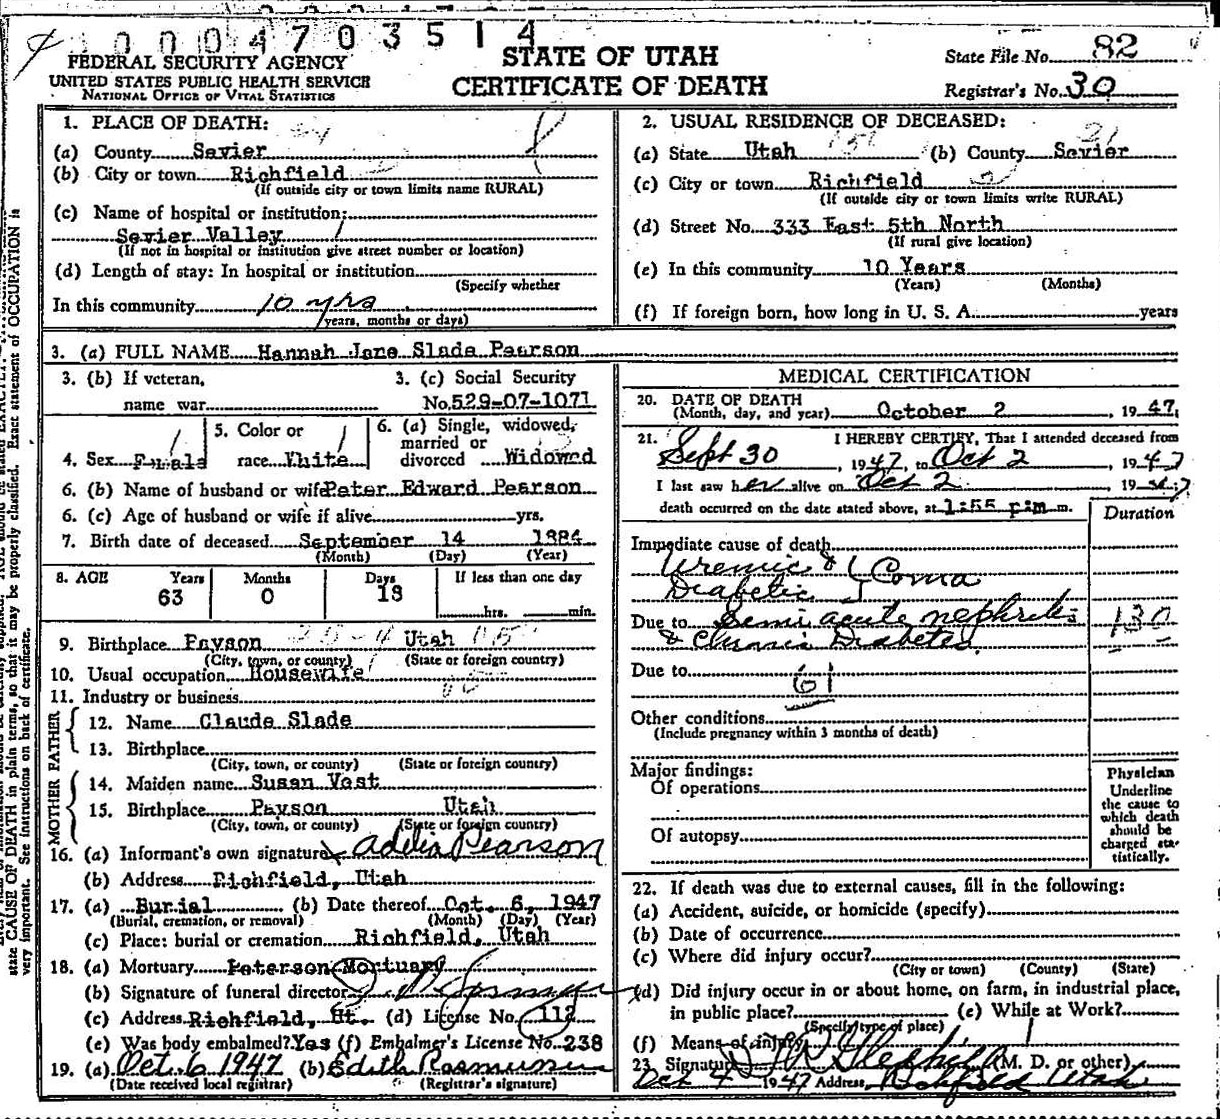 0004703514
FEDERAL SECURITY AGENCY
UNITED STATES PUBLIC HEALTH SERVICE
NATIONAL OFFICE OF VITAL STATISTICS
STATE OF UTAH
CERTIFICATE OF DEATH
State File No. 82
Registrar's No. 30
1. PLACE OF DEATH:
(a) County Sevier
(b) City or town Richfield
(If outside city or town limits name RURAL)
(c) Name of hospital or institution:
Sevier Valley
(If not in hospital or institution give street number or location)
(d) Length of stay: In hospital or institution
(Specify whether
In this community 10 yrs
years, months or days)
2. USUAL RESIDENCE OF DECEASED:
(a) State Utah (b) County Sevier
(c) City or town Richfield
(If outside city or town limits write RURAL)
(d) Street No. 333 East 5th North
(If rural give location)
(e) In this community 10 Years
(Years) (Months)
(f) If foreign born, how long in U. S. A. years
3. (a) FULL NAME Hannah Jane Slade Pearson
3. (b) If veteran, 3. (c) Social Security
name war No. 529-07-1071
4. Sex Female
5. Color or
race White
6. (a) Single, widowed,
married or
divorced Widowed
6. (b) Name of husband or wife Peter Edward Pearson
6. (c) Age of husband or wife if alive yrs.
7. Birth date of deceased September 14 1884
(Month) (Day) (Year)
8. AGE Years Months Days If less than one day
63 0 18 hrs. min.
9. Birthplace Payson Utah
(City, town, or county) (State or foreign country)
10. Usual occupation Housewife
11. Industry or business
FATHER
12. Name Claude Slade
13. Birthplace
(City, town, or county) (State or foreign country)
MOTHER
14. Maiden name Susan Vest
15. Birthplace Payson Utah
(City, town, or county) (State or foreign country)
16. (a) Informant's own signature Adelia Pearson
(b) Address Richfield, Utah
17. (a) Burial (b) Date thereof Oct. 6, 1947
(Burial, cremation, or removal) (Month) (Day) (Year)
(c) Place: burial or cremation Richfield, Utah
18. (a) Mortuary Peterson Mortuary
(b) Signature of funeral director
(c) Address Richfield, Ut. (d) License No. 112
(e) Was body embalmed? Yes (f) Embalmer's License No. 238
19. (a) Oct. 6 1947 (b) Edith Rasmussen
(Date received local registrar) (Registrar's signature)
MEDICAL CERTIFICATION
20. DATE OF DEATH
(Month, day, and year) October 2, 1947
21. I HEREBY CERTIFY, That I attended deceased from
Sept 30, 1947, to Oct 2, 1947
I last saw her alive on Oct 2 1947
death occurred on the date stated above, at 1:55 p:m m.
Duration
Immediate cause of death
Uremic & } Coma
Diabetic
Due to Semi acute nephritis
& Chronic Diabetes
130
Due to
61
Other conditions
(Include pregnancy within 3 months of death)
Major findings:
Of operations
Of autopsy
Physician
Underline
the cause to
which death
should be
charged sta-
tistically.
22. If death was due to external causes, fill in the following:
(a) Accident, suicide, or homicide (specify)
(b) Date of occurrence
(c) Where did injury occur?
(City or town) (County) (State)
(d) Did injury occur in or about home, on farm, in industrial place,
in public place? (e) While at Work?
(Specify type of place)
(f) Means of injury
23. Signature (M. D. or other)
Oct 4 1947 Address Richfield Utah
state CAUSE OF DEATH in plain terms, so that it may be properly classified. Exact statement of OCCUPATION is
very important. See instructions on back of certificate.